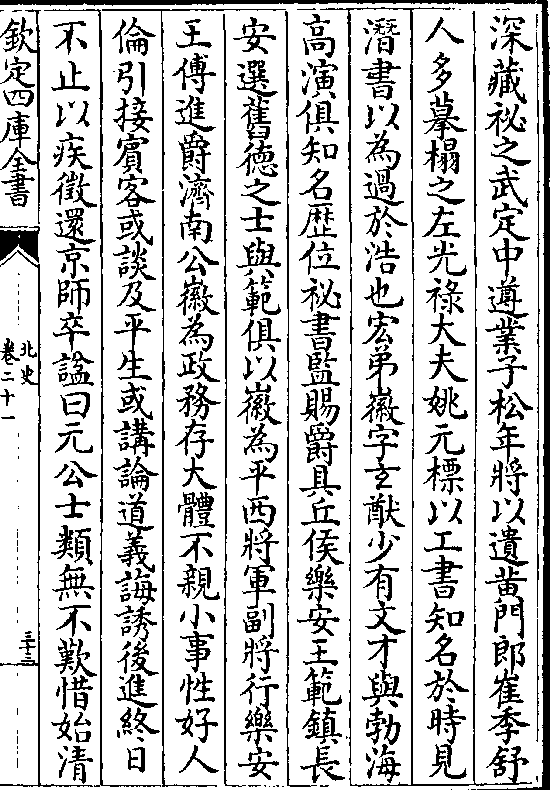 深藏祕之武定中遵業子松年將以遺黄門郎崔季舒
人多摹榻之左光祿大夫姚元標以工書知名於時見
潛書以為過於浩也宏弟徽字𤣥猷少有文才與勃海
高演俱知名歴位祕書監賜爵具丘侯樂安王範鎮長
安選舊德之士與範俱以徽為平西將軍副將行樂安
王傅進爵濟南公徽為政務存大體不親小事性好人
倫引接賓客或談及平生或講論道義誨誘後進終日
不止以疾徵還京師卒諡曰元公士類無不歎惜始清
欽定四庫全書
北史
卷二十一
三十三